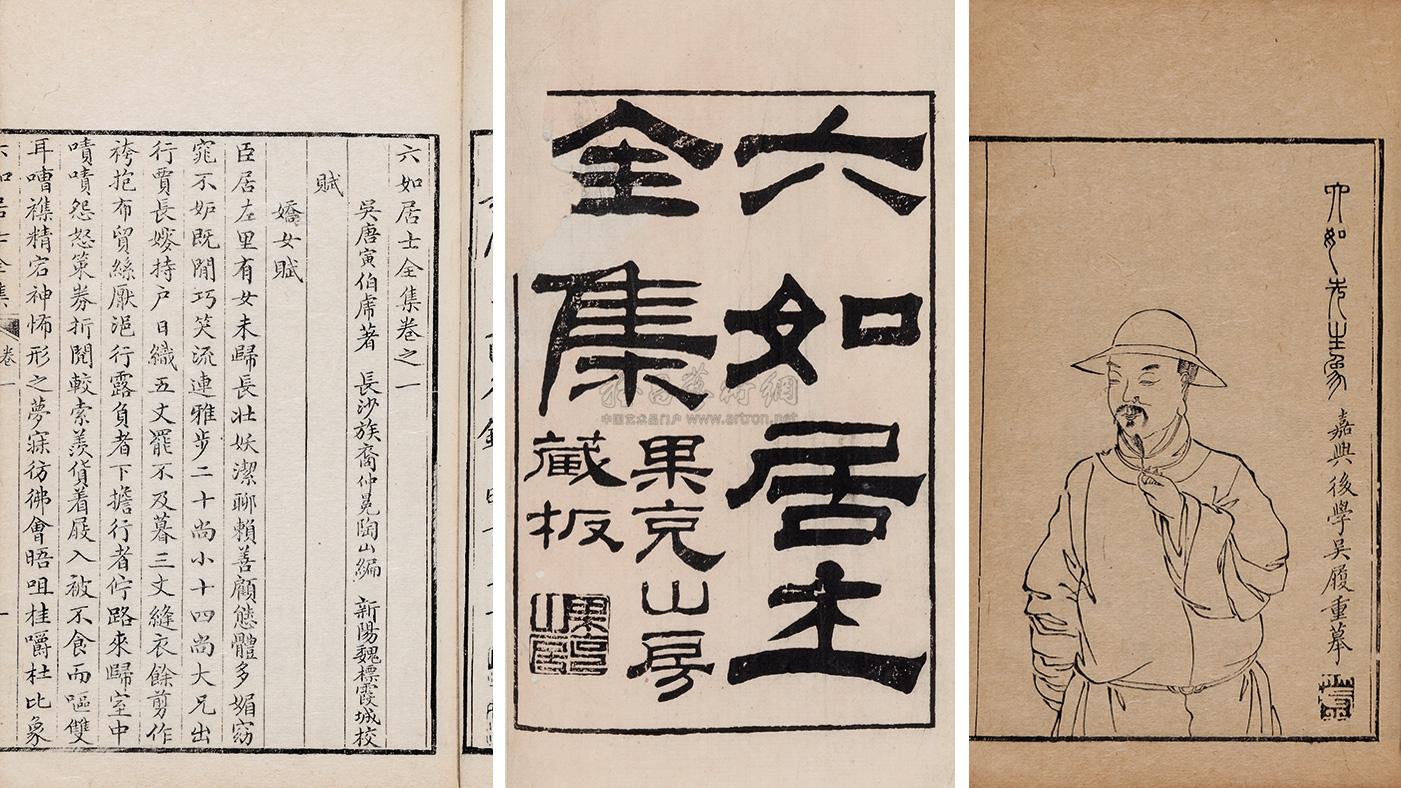 六如居士全集卷之一
吳唐寅伯虎著 長沙族裔仲冕陶山編 新陽魏標霞城校
賦
嬌女賦
臣居左里有女未歸長壯妖潔聊賴善顧態體多媚窈
窕不妒既閒巧笑流連雅步二十尚小十四尚大兄出
行賈長嫂持戶日織五丈罷不及暮三丈縫衣餘剪作
袴抱布貿絲厭浥行露負者下擔行者佇路來歸室中
嘖嘖怨怒策券折閱較索羨貨着屐入被不食而嘔雙
耳嘈襍精宕神怖形之夢寐彷彿會晤咀桂嚼杜比象
六如居士全集
卷一
一
六如居士
全集
果克山房
藏板
中国艺术品门户 www.artron.net
六如先生象
嘉興後學吳履重摹